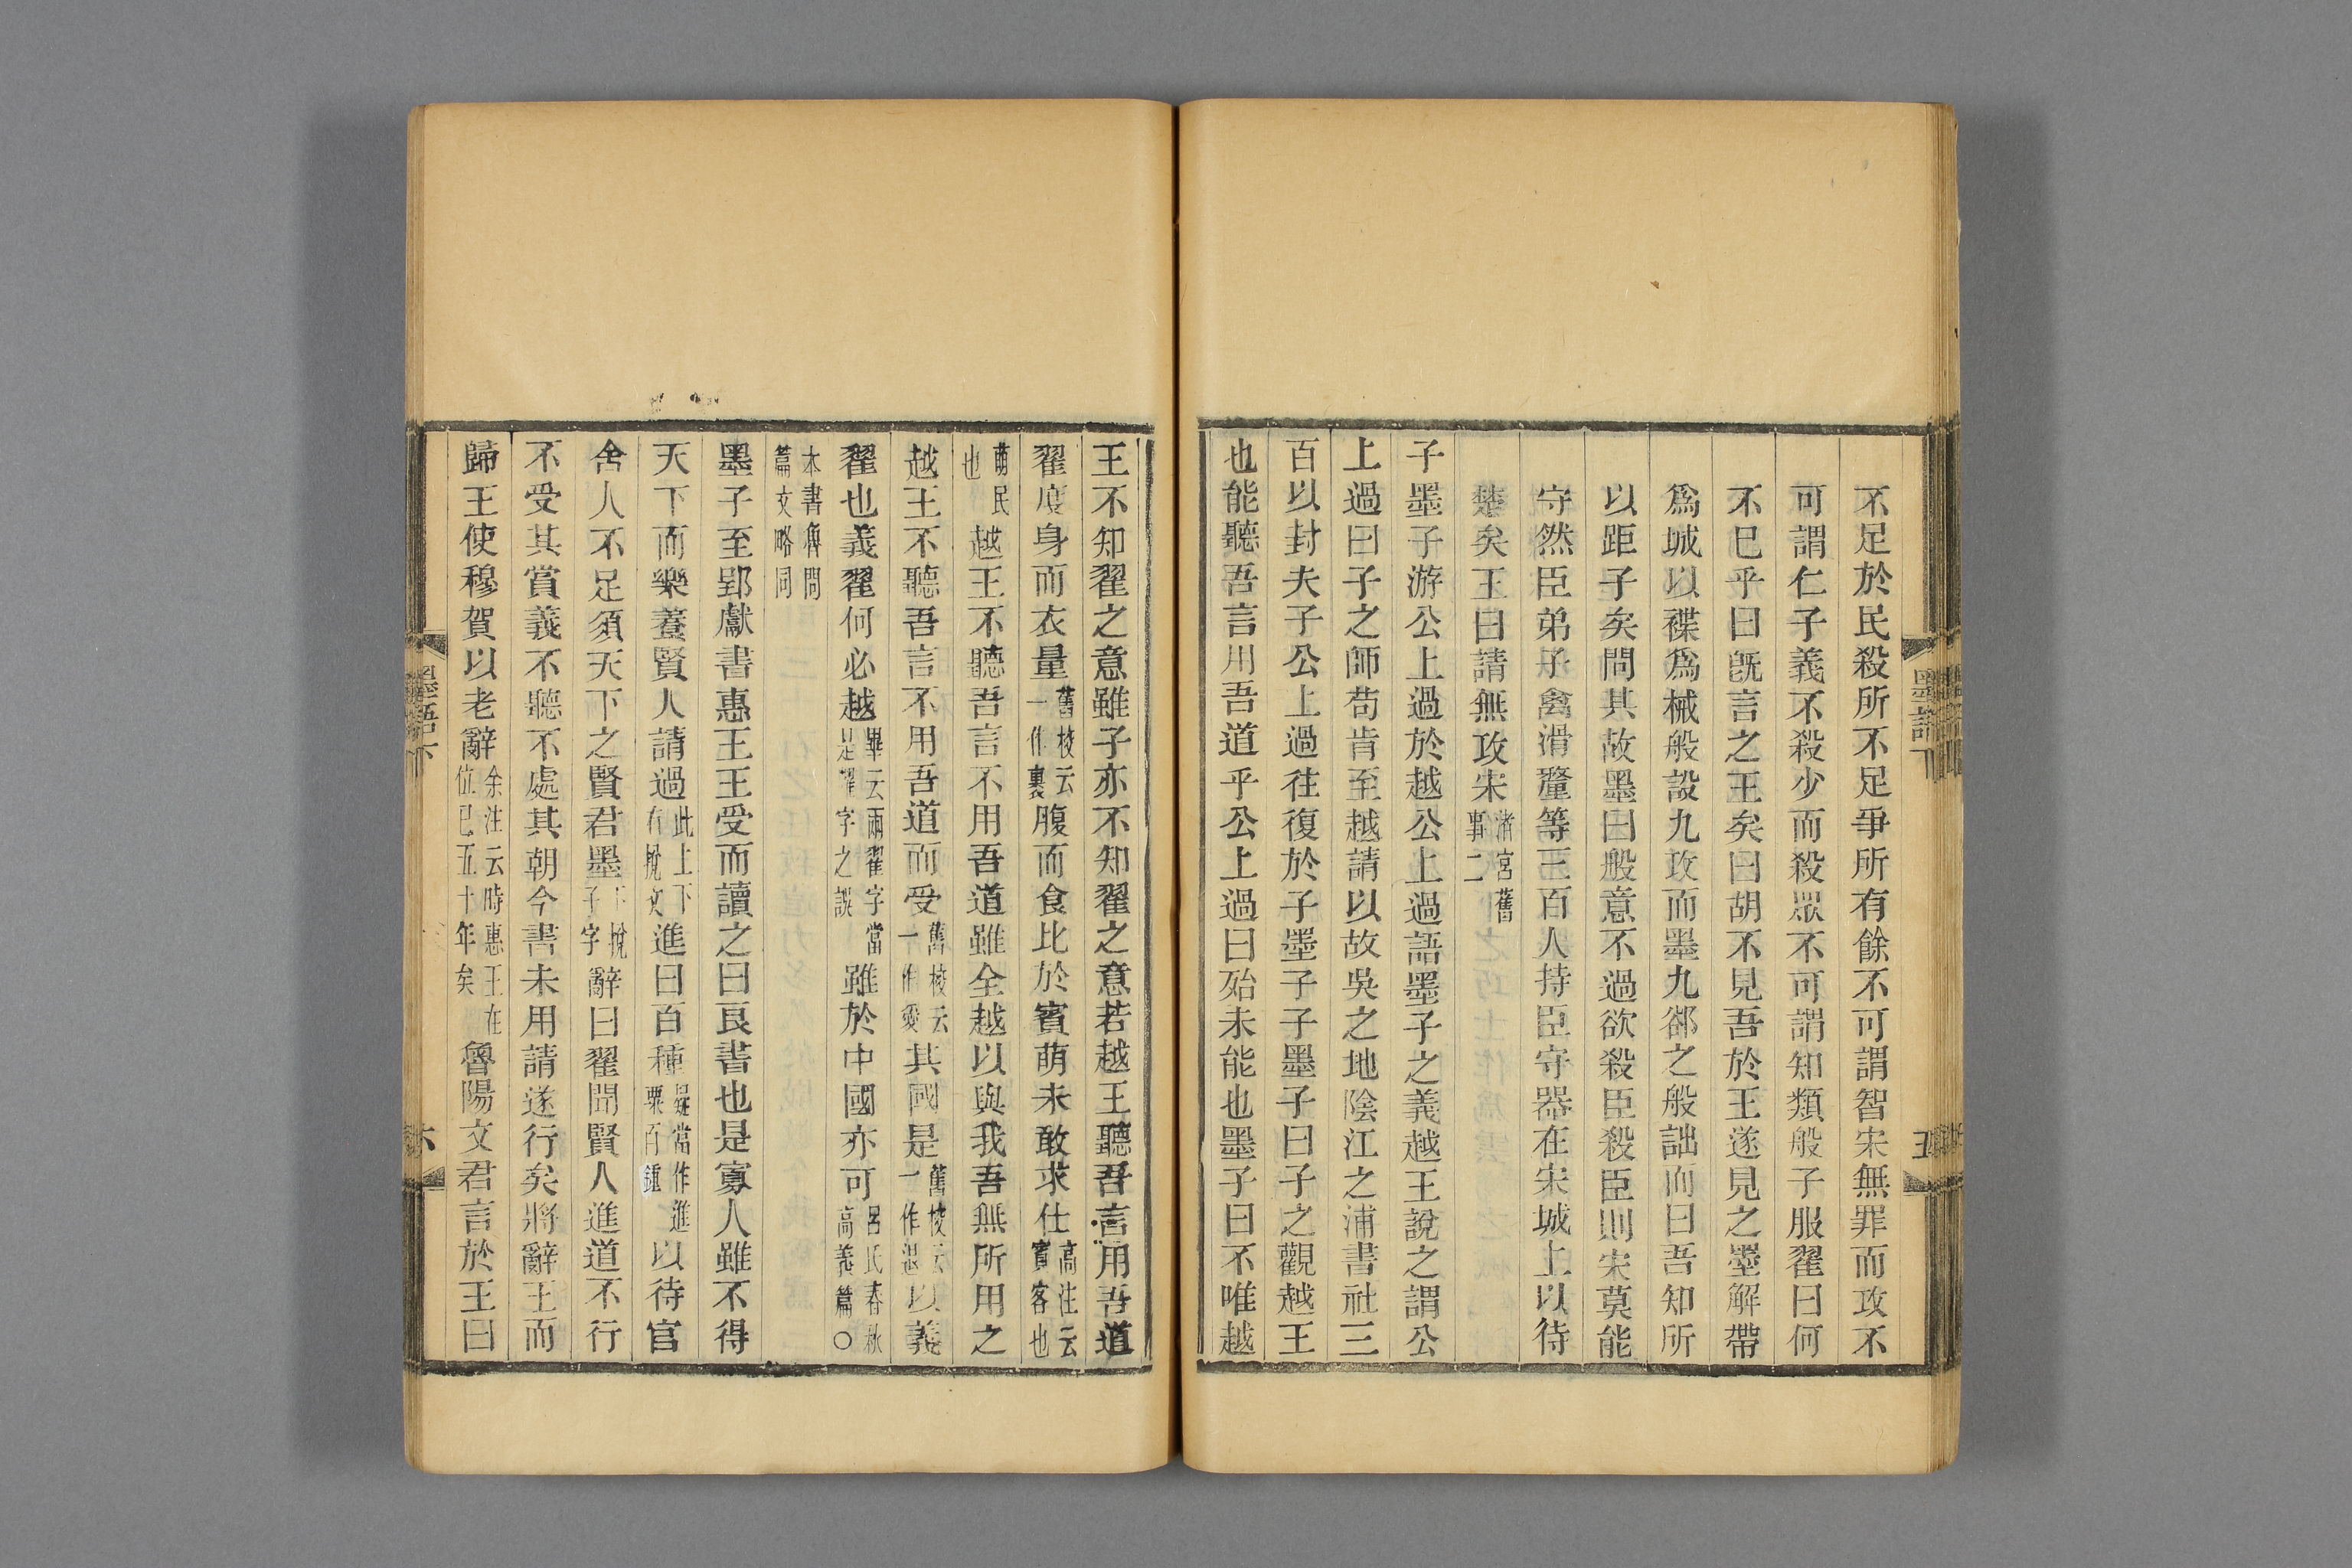 不足於民殺所不足爭所有餘不可謂智宋無罪而攻不
可謂仁子義不殺少而殺眾不可謂知類般子服翟曰何
不已乎曰旣言之王矣曰胡不見吾於王遂見之墨解帶
爲城以襍爲械般設九攻而墨九郤之般詘而曰吾知所
以距子矣問其故墨曰般意不過欲殺臣殺臣則宋莫能
守然臣弟子禽滑釐等三百人持臣守器在宋城上以待
楚矣王曰請無攻宋渚宮舊事二
子墨子游公上過於越公上過語墨子之義越王說之謂公
上過曰子之師苟肯至越請以故吳之地陰江之浦書社三
百以封夫子公上過往復於子墨子子墨子曰子之觀越王
也能聽吾言用吾道乎公上過曰殆未能也墨子曰不唯越
墨語下
五
王不知翟之意雖子亦不知翟之意若越王聽吾言用吾道
翟度身而衣量舊校云一作裏腹而食比於賓萌未敢求仕高注云賓客也
萌民也越王不聽吾言不用吾道雖全越以與我吾無所用之
越王不聽吾言不用吾道而受舊校云一作愛其國是舊校云一作退以義
翟也義翟何必越畢云兩翟字當是糴字之誤雖於中國亦可呂氏春秋高義篇〇
本書魯問篇文略同
墨子至郢獻書惠王王受而讀之曰良書也是寡人雖不得
天下而樂養賢人請過此上下有挩文進曰百種疑當作進粟百鍾以待官
舍人不足須天下之賢君墨下挩子字辭曰翟聞賢人進道不行
不受其賞義不聽不處其朝今書未用請遂行矣將辭王而
歸王使穆賀以老辭余注云時惠王在位已五十年矣魯陽文君言於王曰
墨語下
六